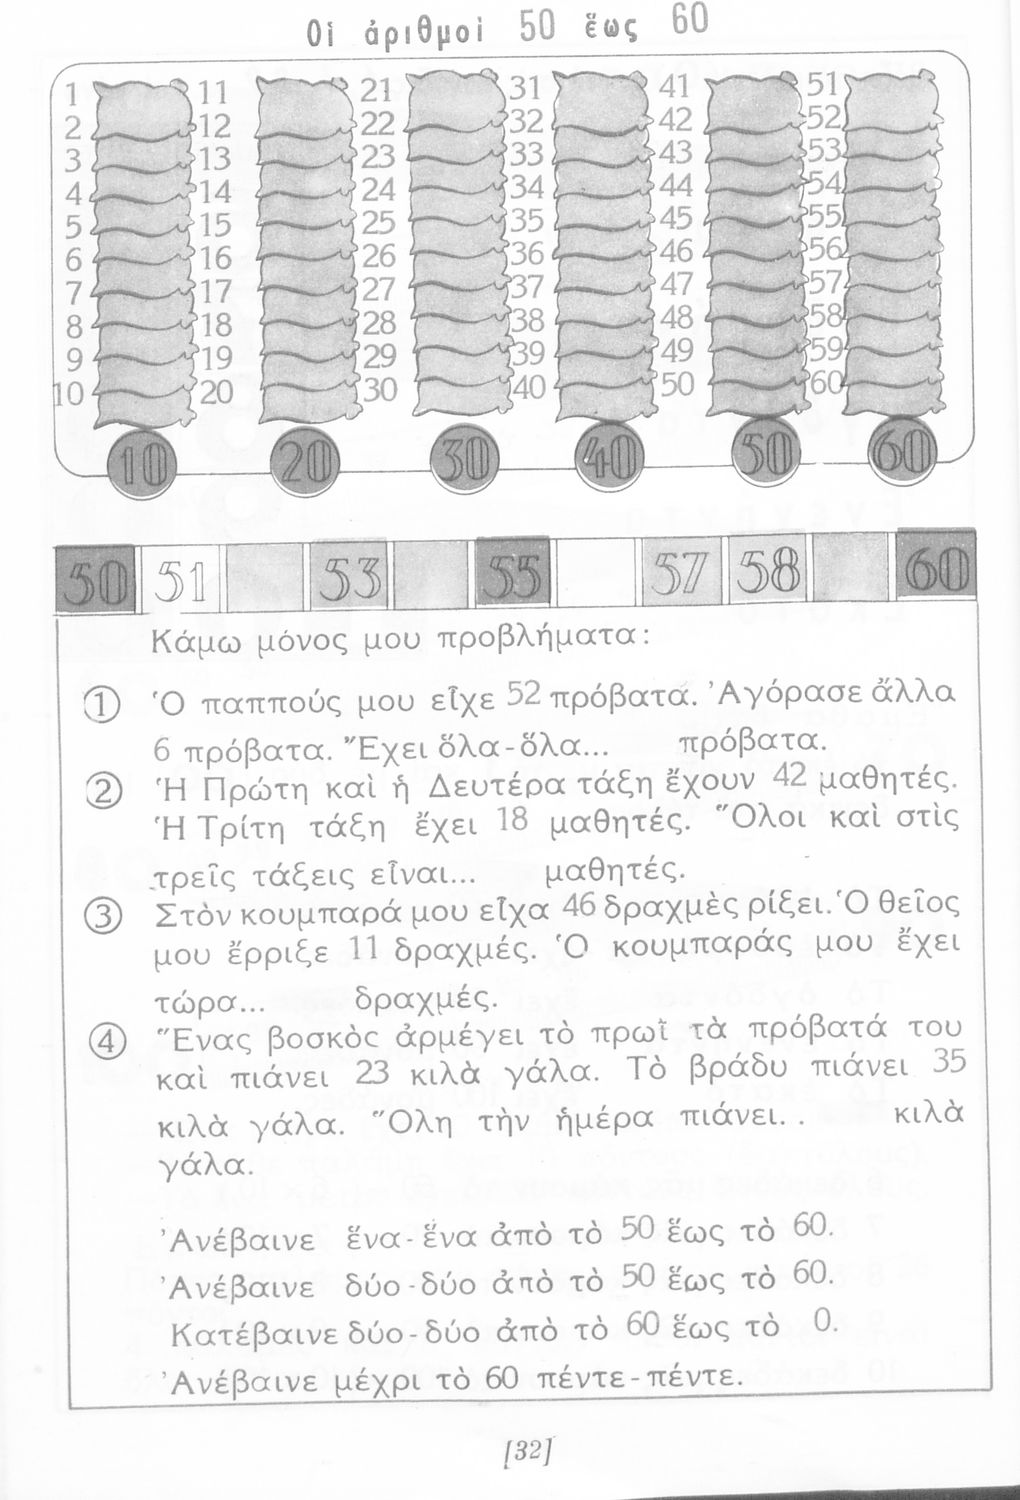 Οἱ ἀριθμοὶ 50 ἕως 60
1 11 21 31 41 51
2 12 22 32 42 52
3 13 23 33 43 53
4 14 24 34 44 54
5 15 25 35 45 55
6 16 26 36 46 56
7 17 27 37 47 57
8 18 28 38 48 58
9 19 29 39 49 59
10 20 30 40 50 60
10 20 30 40 50 60
50 51 53 55 57 58 60
Κάμω μόνος μου προβλήματα:
① Ὁ παππούς μου εἶχε 52 πρόβατα. Ἀγόρασε ἄλλα
6 πρόβατα. Ἔχει ὅλα-ὅλα... πρόβατα.
② Ἡ Πρώτη καὶ ἡ Δευτέρα τάξη ἔχουν 42 μαθητές.
Ἡ Τρίτη τάξη ἔχει 18 μαθητές. Ὅλοι καὶ στὶς
τρεῖς τάξεις εἶναι... μαθητές.
③ Στὸν κουμπαρά μου εἶχα 46 δραχμὲς ρίξει. Ὁ θεῖος
μου ἔρριξε 11 δραχμές. Ὁ κουμπαράς μου ἔχει
τώρα... δραχμές.
④ Ἕνας βοσκὸς ἀρμέγει τὸ πρωῒ τὰ πρόβατά του
καὶ πιάνει 23 κιλὰ γάλα. Τὸ βράδυ πιάνει 35
κιλὰ γάλα. Ὅλη τὴν ἡμέρα πιάνει. . κιλὰ
γάλα.
Ἀνέβαινε ἕνα-ἕνα ἀπὸ τὸ 50 ἕως τὸ 60.
Ἀνέβαινε δύο-δύο ἀπὸ τὸ 50 ἕως τὸ 60.
Κατέβαινε δύο-δύο ἀπὸ τὸ 60 ἕως τὸ 0.
Ἀνέβαινε μέχρι τὸ 60 πέντε-πέντε.
[32]